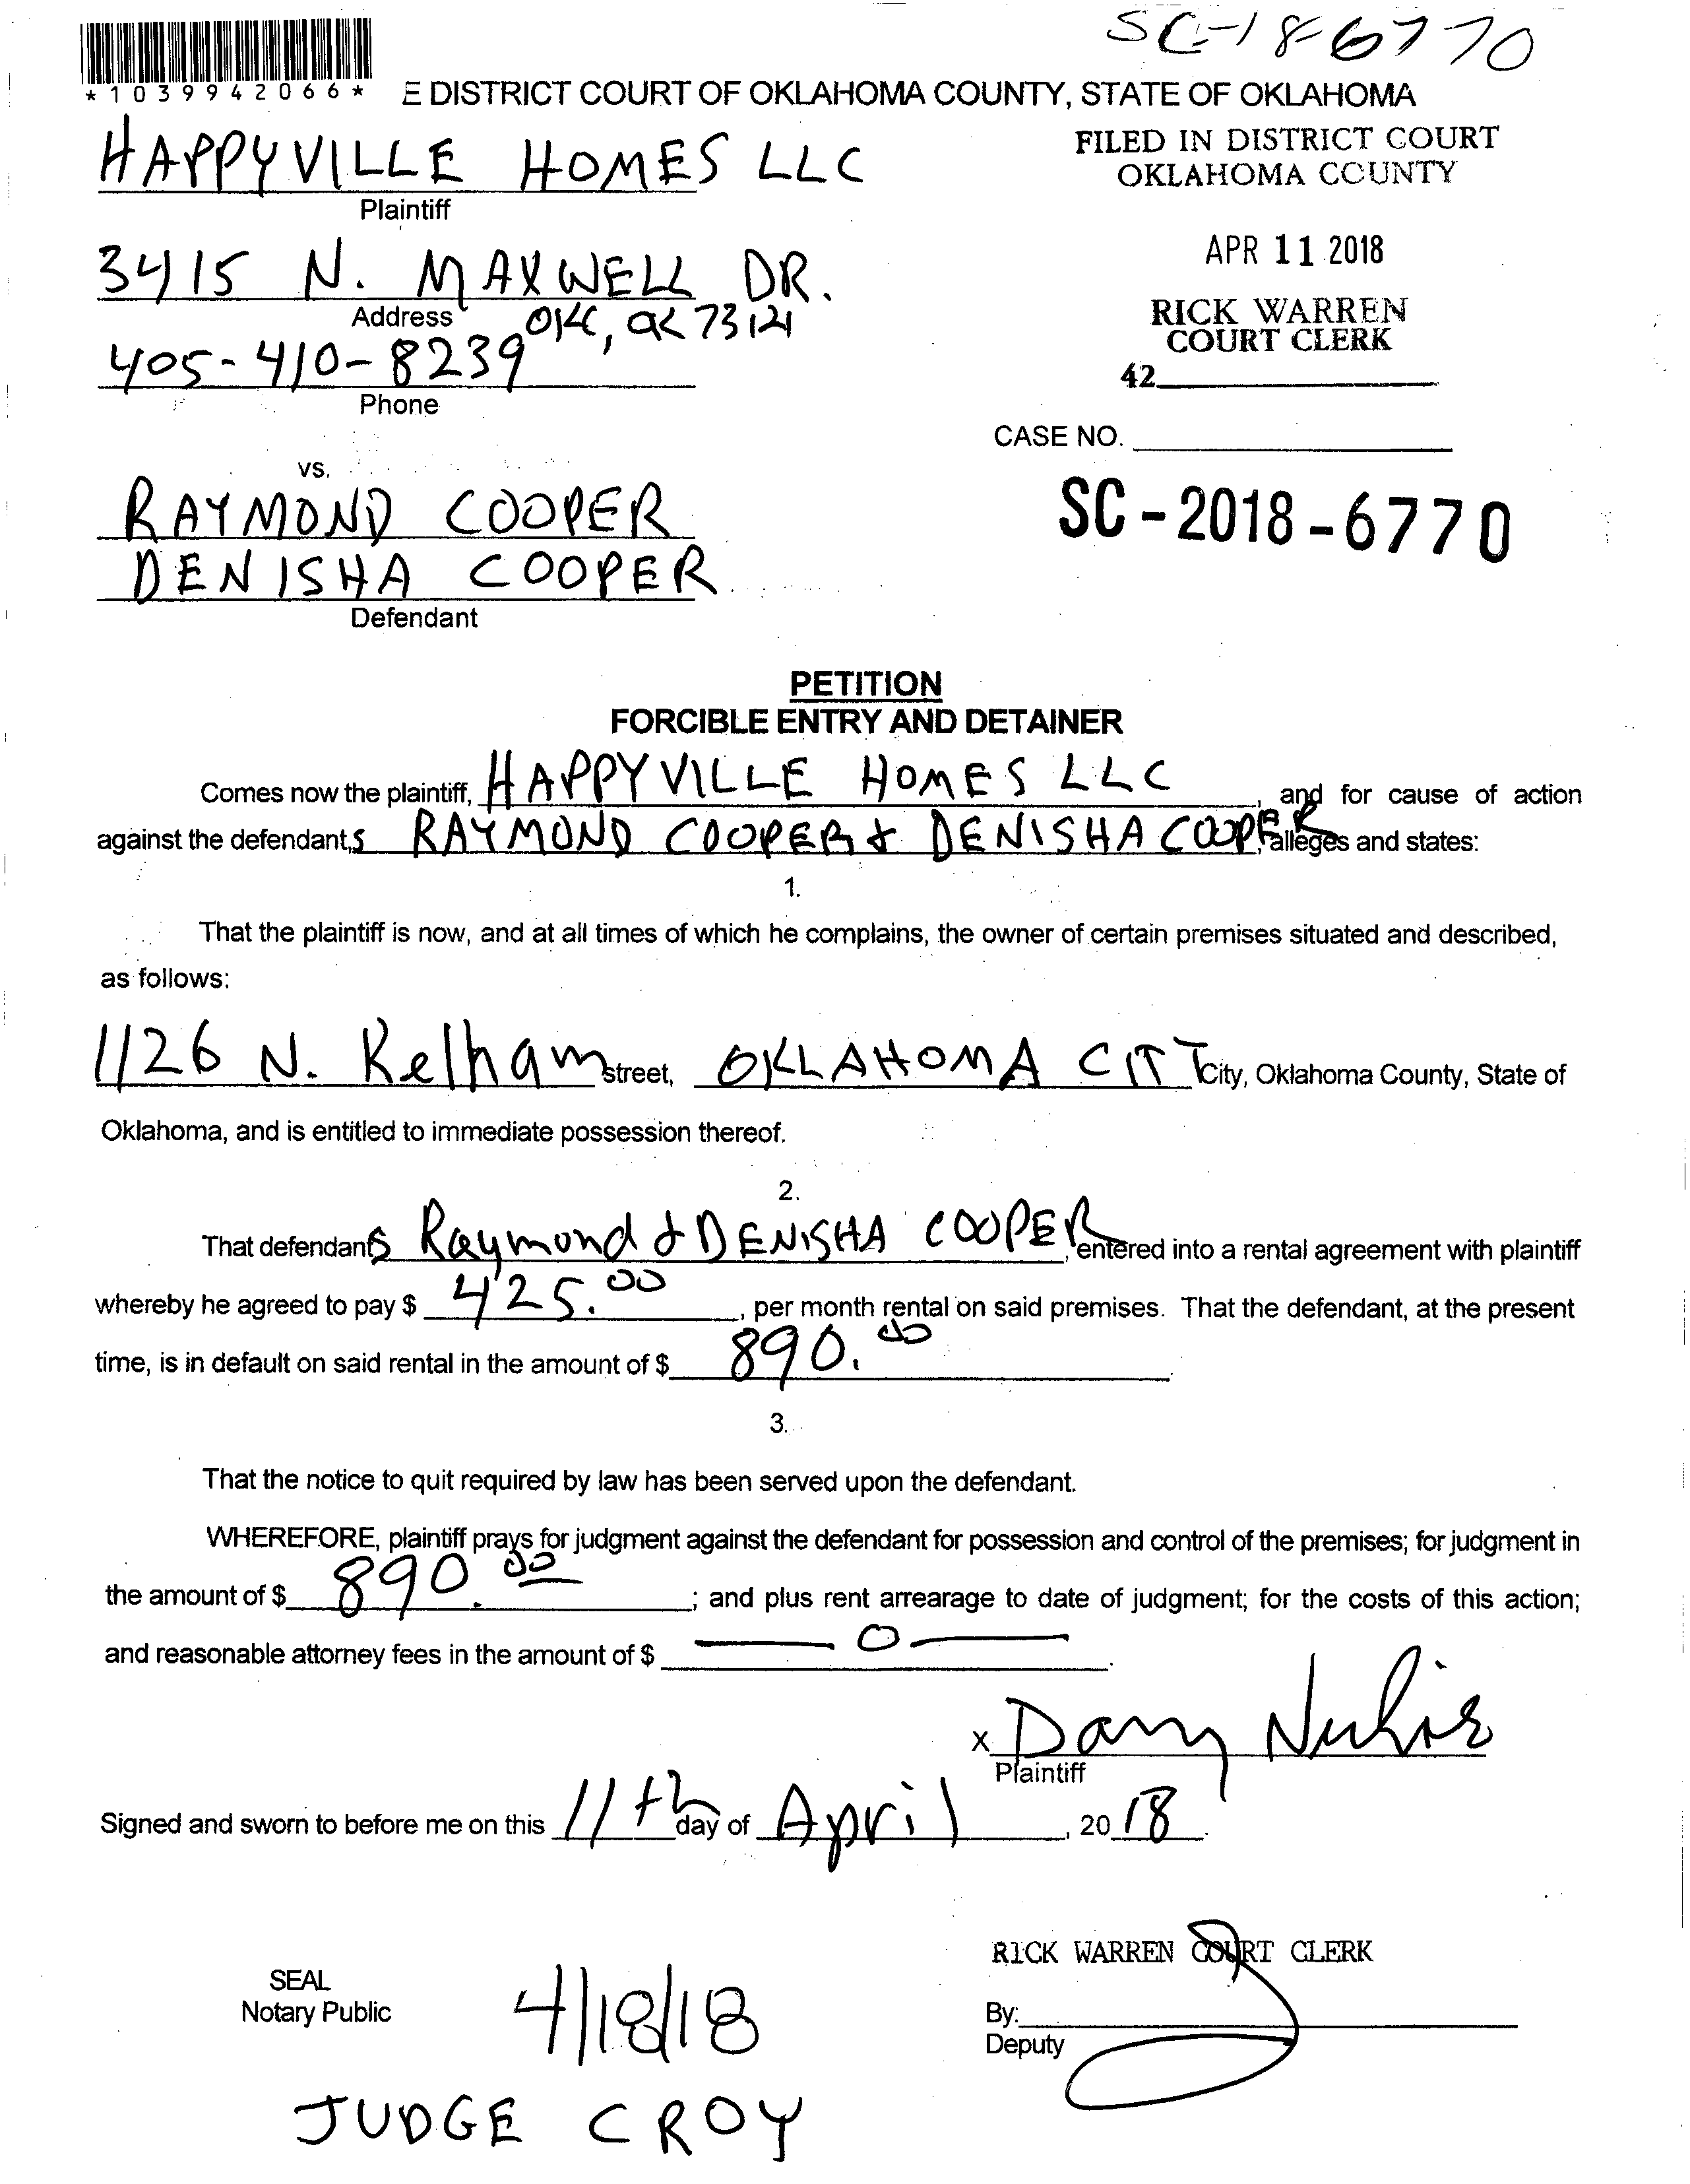 SC-18-6770
*1039942066*
E DISTRICT COURT OF OKLAHOMA COUNTY, STATE OF OKLAHOMA
HAPPYVILLE HOMES LLC
Plaintiff
FILED IN DISTRICT COURT
OKLAHOMA COUNTY
3415 N. MAXWELL DR.
Address
OKC, OK 73121
APR 11 2018
405-410-8239
Phone
RICK WARREN
COURT CLERK
42
CASE NO.
vs.
RAYMOND COOPER
DENISHA COOPER
Defendant
SC-2018-6770
PETITION
FORCIBLE ENTRY AND DETAINER
Comes now the plaintiff, HAPPYVILLE HOMES LLC, and for cause of action
against the defendant,s RAYMOND COOPER & DENISHA COOPER, alleges and states:
1.
That the plaintiff is now, and at all times of which he complains, the owner of certain premises situated and described,
as follows:
1126 N. Kelham street, OKLAHOMA CITY City, Oklahoma County, State of
Oklahoma, and is entitled to immediate possession thereof.
2.
That defendants Raymond & DENISHA COOPER, entered into a rental agreement with plaintiff
whereby he agreed to pay $ 425.00, per month rental on said premises. That the defendant, at the present
time, is in default on said rental in the amount of $ 890.00.
3.
That the notice to quit required by law has been served upon the defendant.
WHEREFORE, plaintiff prays for judgment against the defendant for possession and control of the premises; for judgment in
the amount of $ 890.00; and plus rent arrearage to date of judgment; for the costs of this action;
and reasonable attorney fees in the amount of $ —0—.
X Danny
Plaintiff
Signed and sworn to before me on this 11th day of April, 2018.
RICK WARREN COURT CLERK
SEAL
Notary Public
4/18/18
By:
Deputy
JUDGE CROY